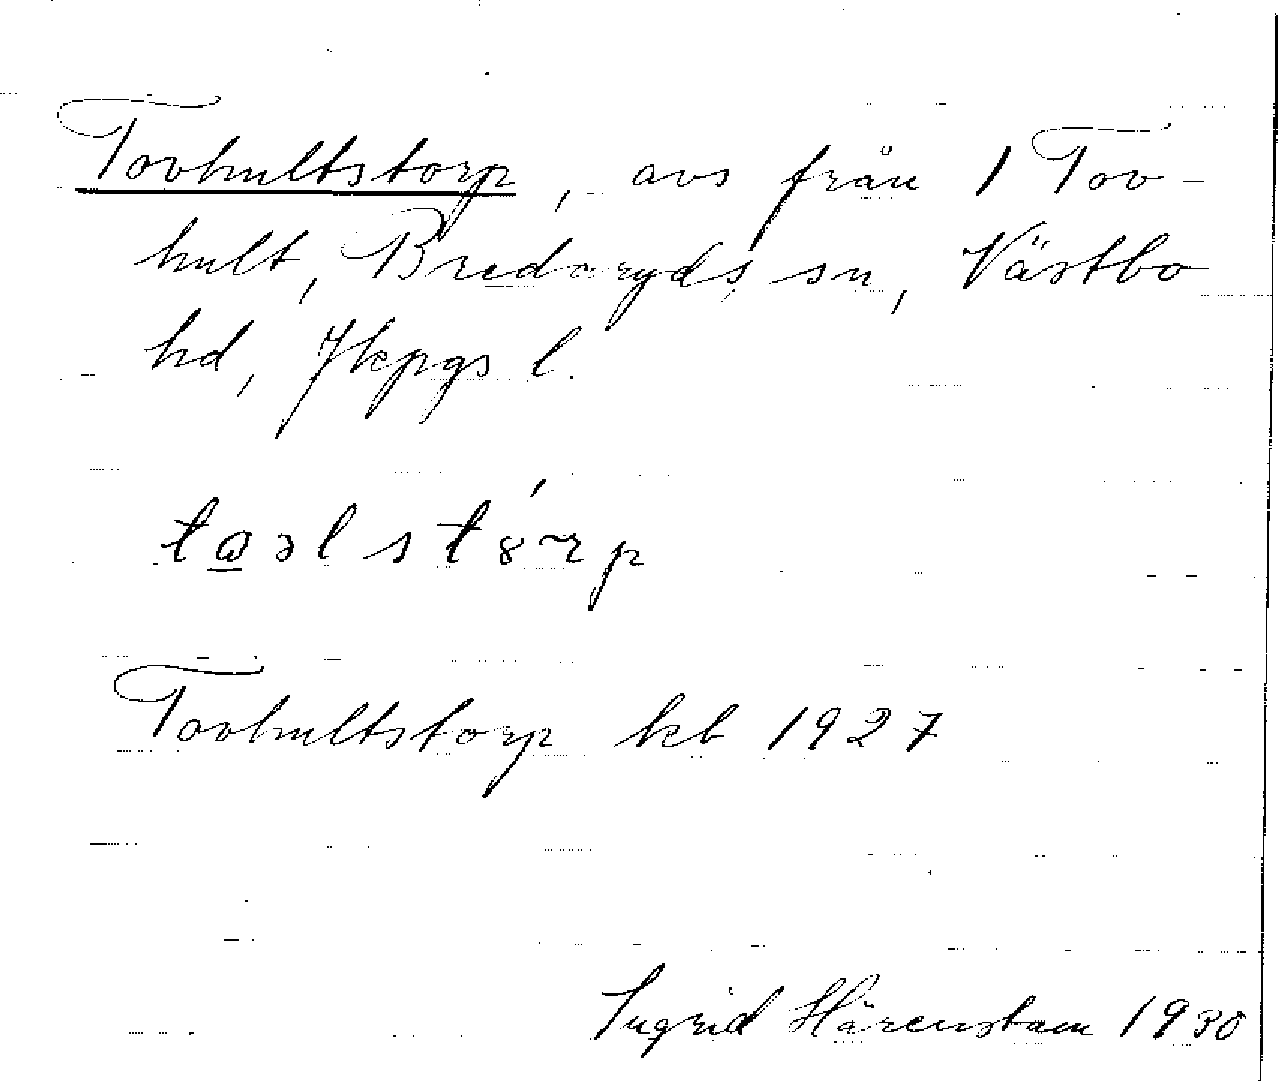 Tovhultstorp, avs från 1 Tov-
hult, Bredaryds sn, Västbo
hd, Jkpgs l.
Tovhultstorp kb 1927
Ingrid Härenstam 1930